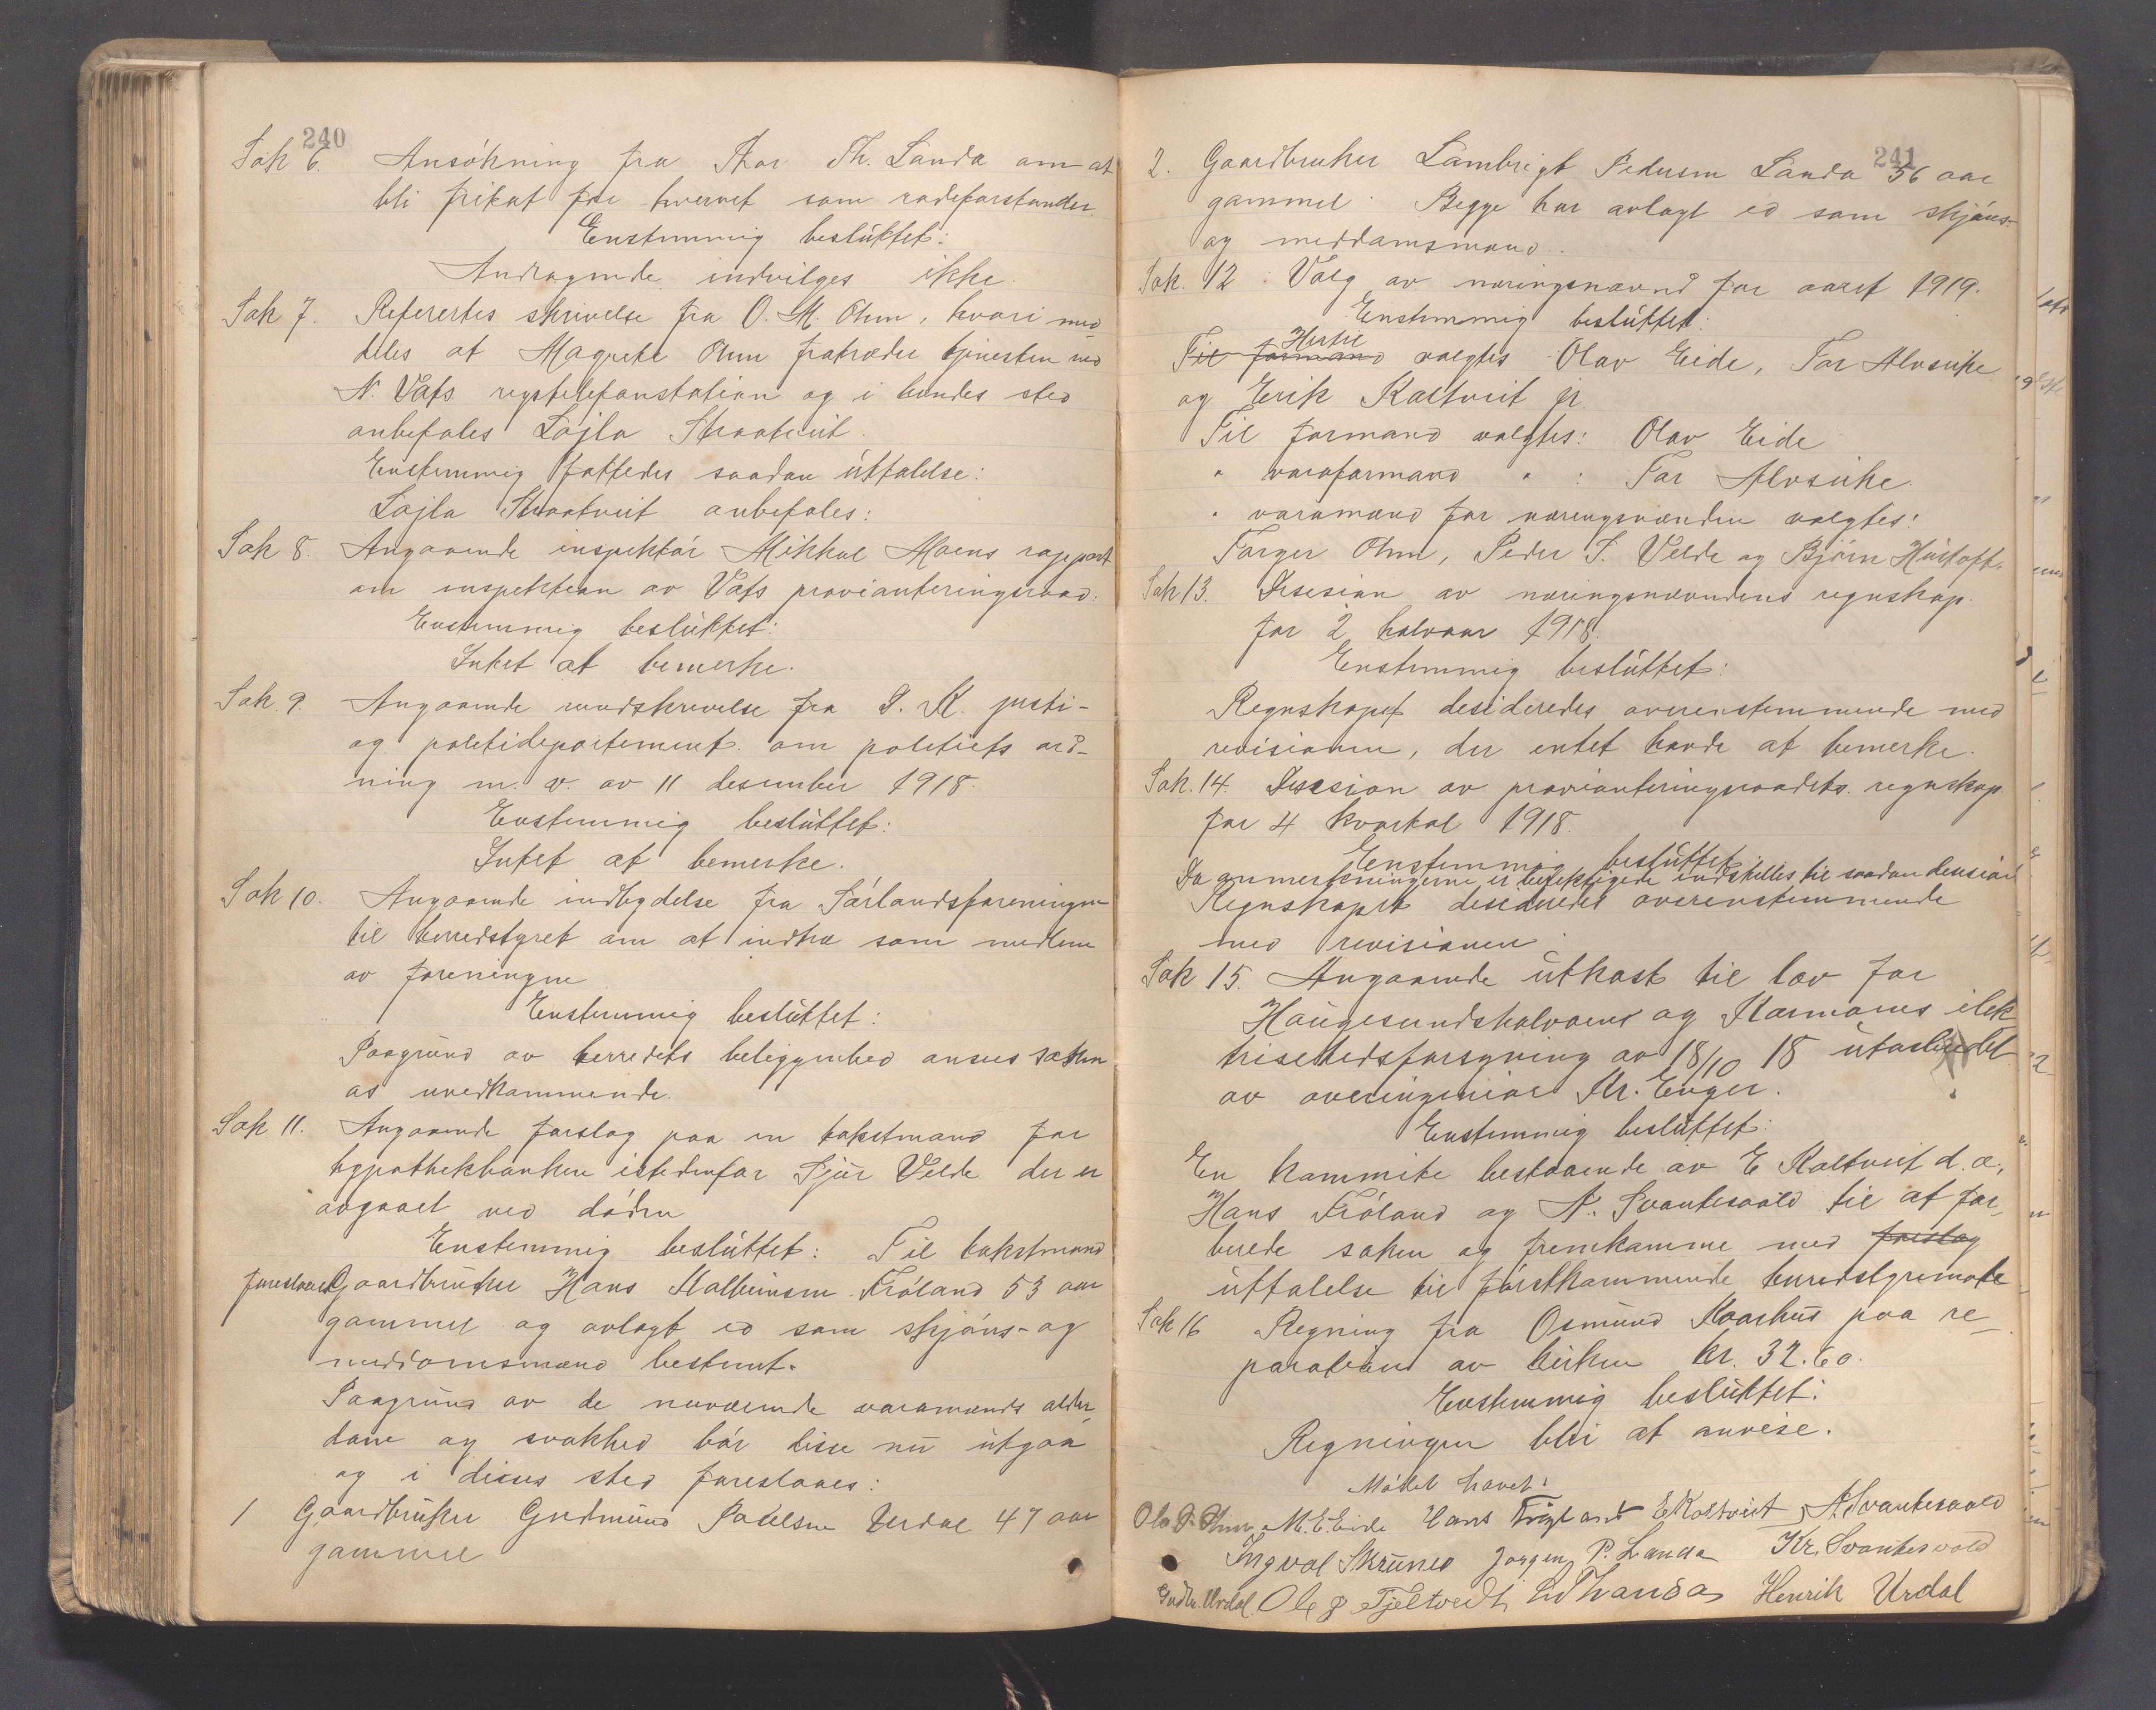 240
Sak 6. Ansökning fra Thor Th. Landa om at
bli fritat for hvervet som rodeforstander.
Enstemmig beslüttet:
Andragende indvilges ikke.
Sak 7. Referertes skrivelse fra O. M. Ohm, hvori med
deles at Magrete Ohm fratræder tjenesten ved
N. Vats rigstelefonstation og i hendes sted
anbefales Lajla Straatveit.
Enstemmig fattedes saadan üttalelse:
Lajla Straatveit anbefales:
Sak 8. Angaaende inspektör Mikkel Moens rapport
om inspektion av Vats provianteringsraad.
Enstemmig beslüttet:
Intet at bemerke.
Sak 9. Angaaende rundskrivelse fra D. K. justi-
og politidepartement om politiets ord-
ning m. v. av 11 desember 1918.
Enstemmig beslüttet:
Intet at bemerke.
Sak 10. Angaaende indbydelse fra Sörlandsforeningen
til herredstyret om at indtræ som medlem
av foreningen
Enstemmig beslüttet:
Paagründ av herredets beliggenhed ansees saken
os uvedkommende.
Sak 11. Angaaende forslag paa en takstmand for
hypothekbanken istedenfor Sjür Velde der er
avgaaet ved döden
Enstemmig beslüttet: Til takstmand
foreslaaes Gaardbrüker Hans Kolbeinsen Fröland 53 aar
gammel og avlagt ed som skjöns- og
meddomsmand bestemt.
Paagründ av de nuværende varamænds alder-
dom og svakhed bör disse nü ütgaa
og i disses sted foreslaaes:
1 Gaardbrüker Gudmünd Paulsen Urdal 47 aar
gammel
241
2. Gaardbruker Lambrigt Pedersen Landa 56 aar
gammel. Begge har avlagt ed som skjöns-
og meddomsmand.
Sak. 12. Valg av næringsnævnd for aaret 1919.
Enstemmig beslüttet:
Hertil
Til formand valgtes Olav Eide, Tor Alvseike
og Erik Kaltveit jr.
Til formand valgtes: Olav Eide
" varaformand " : Tor Alvseike.
" varamænd for næringsnævnden valgtes:
Torger Ohm, Peder T. Velde og Björn Hüstoft.
Sak 13. Desesion av næringsnævndens regnskap
for 2 halvaar 1918.
Enstemmig beslüttet:
Regnskapet desideredes overenstemmende med
revisionen, der intet havde at bemerke.
Sak. 14. Desesion av provianteringsraadets regnskap
for 4 kvartal 1918.
Enstemmig beslüttet
Da anmerkningerne er befektigede indstilles til saadan desesion
Regnskapet desideredes overenstemmende
med revisionen.
Sak 15. Angaaende ütkast til lov for
Haügesundshalvøens og Karmøens elek
trisitetsforsyning av 18/10 18 ütarbeidet
av overingeniør Kr. Enger.
Enstemmig beslüttet:
En kommite bestaaende av E Kaltveit d. æ.,
Hans Fröland og N. Svantesvold til at for-
berede saken og fremkomme med forslag
üttalelse til förstkommende herredstyremøte
Sak 16 Regning fra Osmünd Kaarhus paa re-
paration av kirken kr. 32.60.
Enstemmig beslüttet:
Regningen blir at anvise.
Mödet hævet:
Ola O. Ohm M. E. Eide Hans Fröland E Kaltveit N Svantesvold
Ingval Skrünes Jørgen P. Landa Kr. Svantesvold
Gudm. Urdal. Ole J Fjeltvedt Landa Henrik Urdal